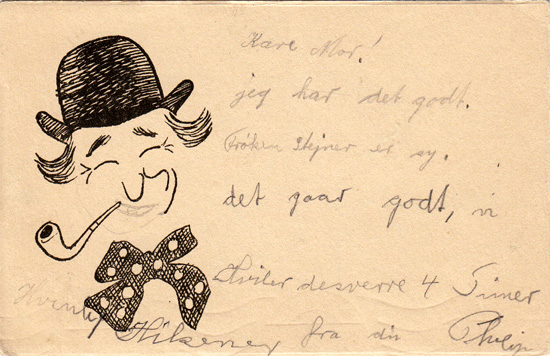 Kære Mor!
jeg har det godt.
Frøken Stejner er sy.
det gaar godt, vi
Hviler desverre 4 Timer
Hilsener fra din Philip